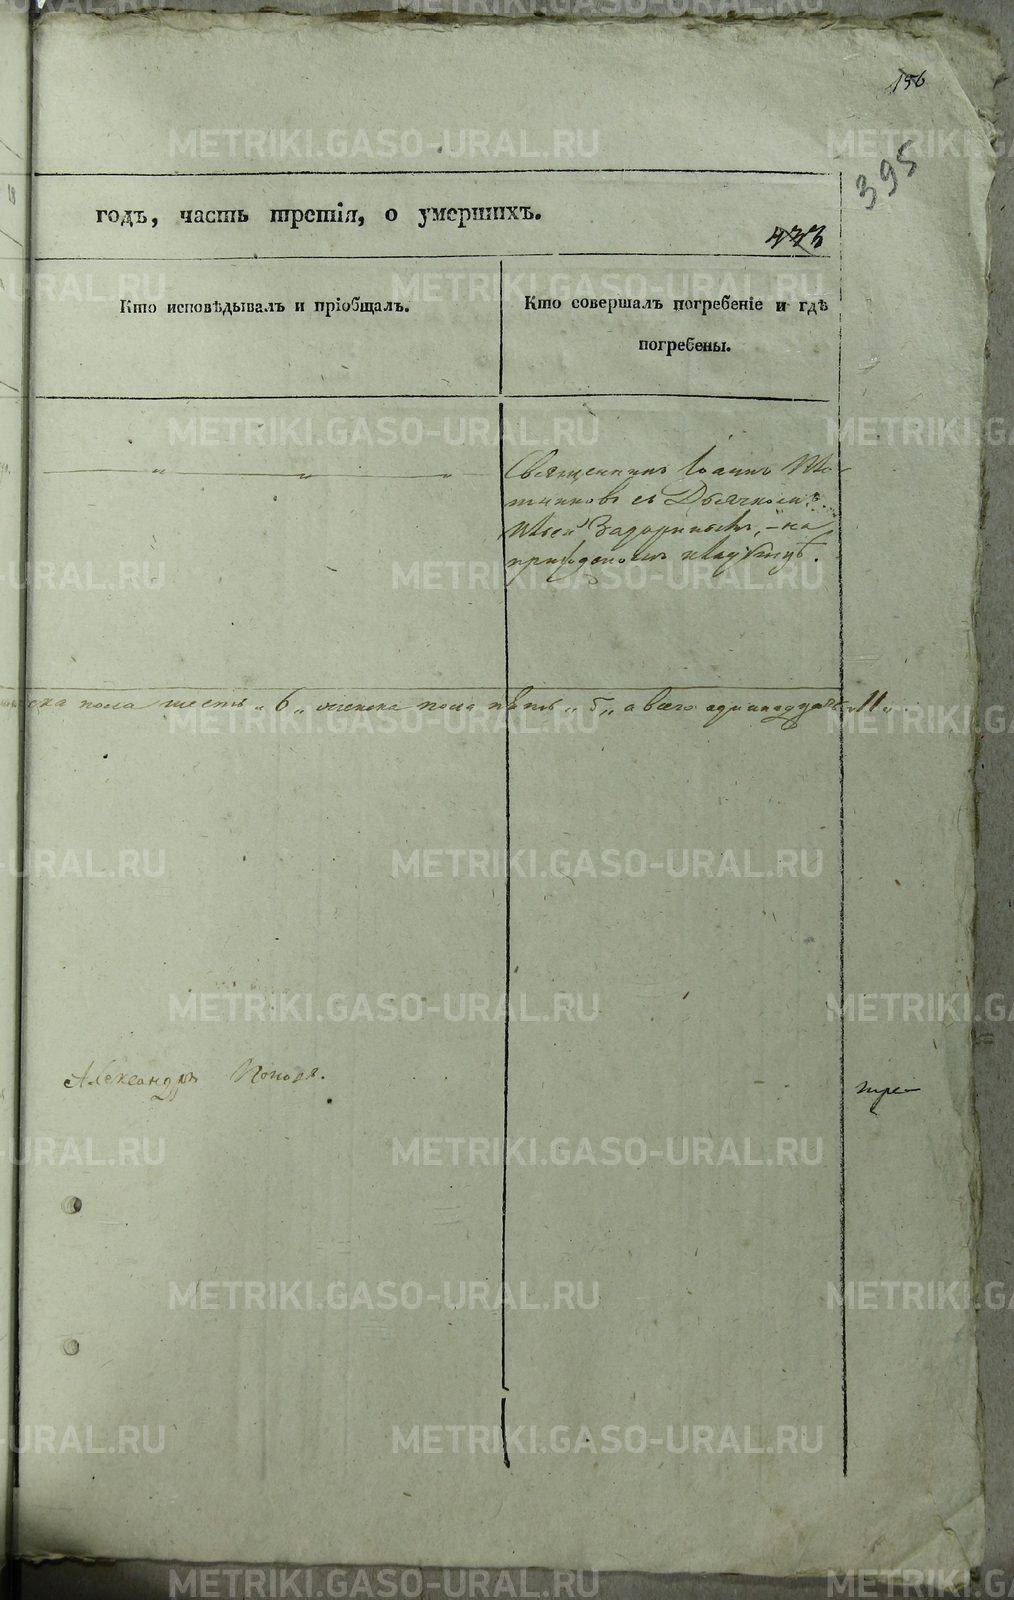 156
395
годъ, часть третія, о умершихъ.
433
Кто исповѣдывалъ и пріобщалъ.
Кто совершалъ погребеніе и гдѣ
погребены.
Священникъ Іоаннъ
съ Дьячкомъ
на
приходскомъ кладбищѣ.
ска пола шесть „6„ женска пола пять „5„ а всего одинадцать „11„
Александръ Поповъ.
тре-
METRIKI.GASO-URAL.RU